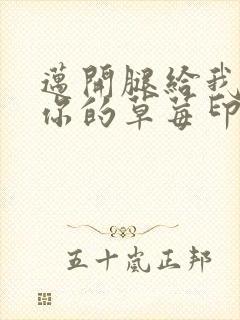 邁開腿給我
你的草莓印
五十嵐正邦